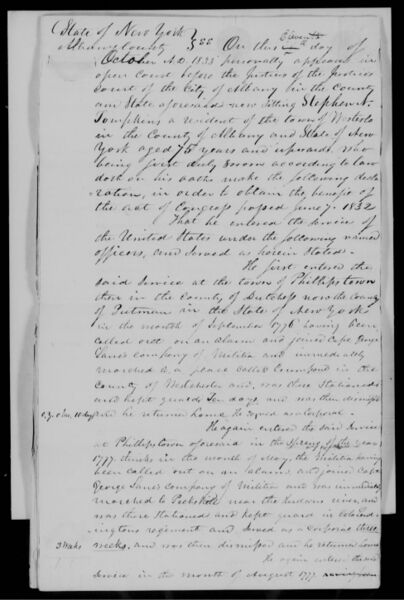 State of New York
Albany County } SS On this Eleventh day of
October A.D. 1833 personally appeared in
open Court before the Justices of the Justices
Court of the City of Albany in the County
and State aforesaid now sitting Stephen N.
Tompkins a resident of the town of Westerlo
in the County of Albany and State of New
York aged 75 years and upwards who
being first duly sworn according to law
doth on his oath make the following decla
ration, in order to obtain the benefit of
the act of Congress passed June 7. 1832
That he entered the service of
the United States under the following named
officers, and served as herein stated.
He first entered the
said service at the town of Phillipstown
then in the County of Dutchess now the County
of Putnam in the State of New York
in the month of September 1776 having been
called out on an alarm and joined Capt George
Lane's company of Militia and immediately
marched to a place called Crumpond in the
County of Westchester and was there stationed
and kept guard ten days, and was then dismissed
and he returned home He served as Corporal.
He again entered the said service
at Phillipstown aforesaid in the Spring of the year
1777, thinks in the month of May, the Militia having
been called out on an alarm and joined Capt
George Lane's company of Militia and was immediately
marched to Peekskill near the Hudson river and
was there stationed and kept guard in
regiment and served as a corporal three
3 Weeks weeks, and was then dismissed and he returned home
He again entered the said
service in the month of August 1777